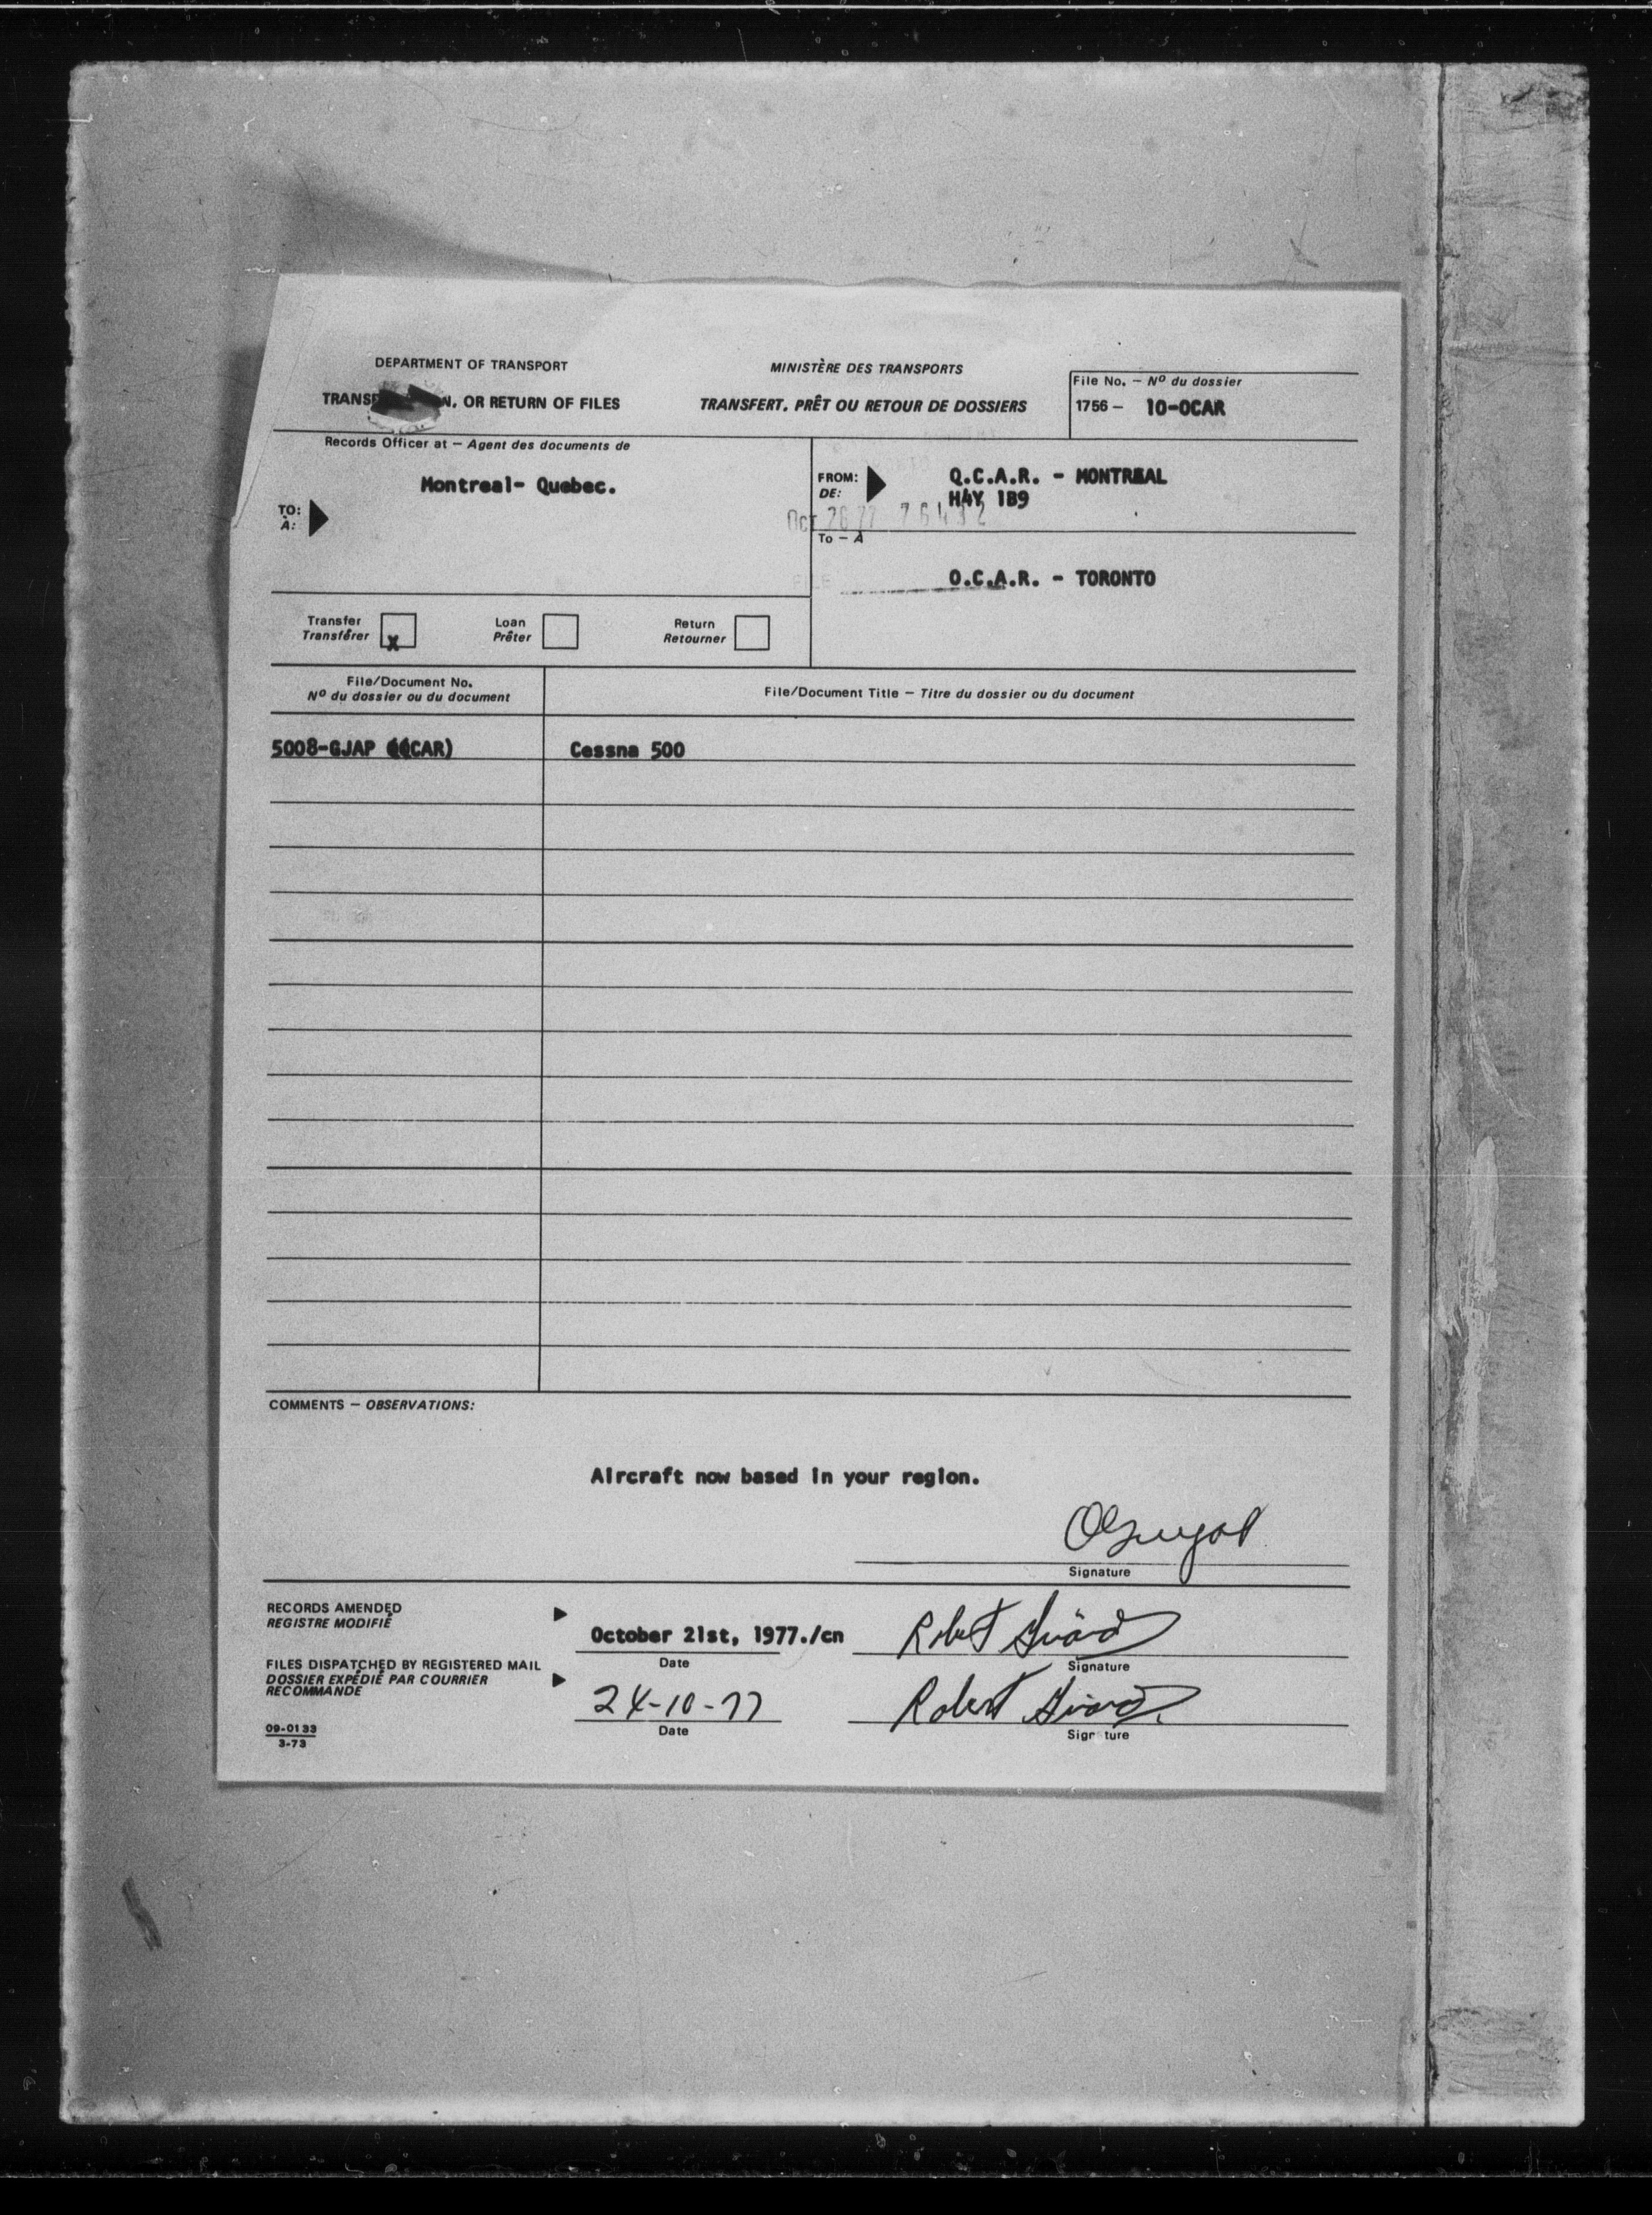 DEPARTMENT OF TRANSPORT
MINISTÈRE DES TRANSPORTS
OR RETURN OF FILES
TRANSFERT, PRÊT OU RETOUR DE DOSSIERS
File No. – Nº du dossier
1756 – 10-OCAR
Records Officer at – Agent des documents de
Montreal- Quebec.
TO:
À:
FROM:
DE:
Q.C.A.R. - MONTREAL
H4Y 1B9
Oct 26 77
To – A
O.C.A.R. - TORONTO
Transfer
Transférer
x
Loan
Prêter
Return
Retourner
File/Document No.
Nº du dossier ou du document
File/Document Title – Titre du dossier ou du document
5008-GJAP
Cessna 500
COMMENTS – OBSERVATIONS:
Aircraft now based in your region.
Signature
RECORDS AMENDED
REGISTRE MODIFIÉ
October 21st, 1977./cn
Robert
Date
Signature
FILES DISPATCHED BY REGISTERED MAIL
DOSSIER EXPÉDIÉ PAR COURRIER
RECOMMANDE
24-10-77
Robert
Date
Signature
09-0133
3-73